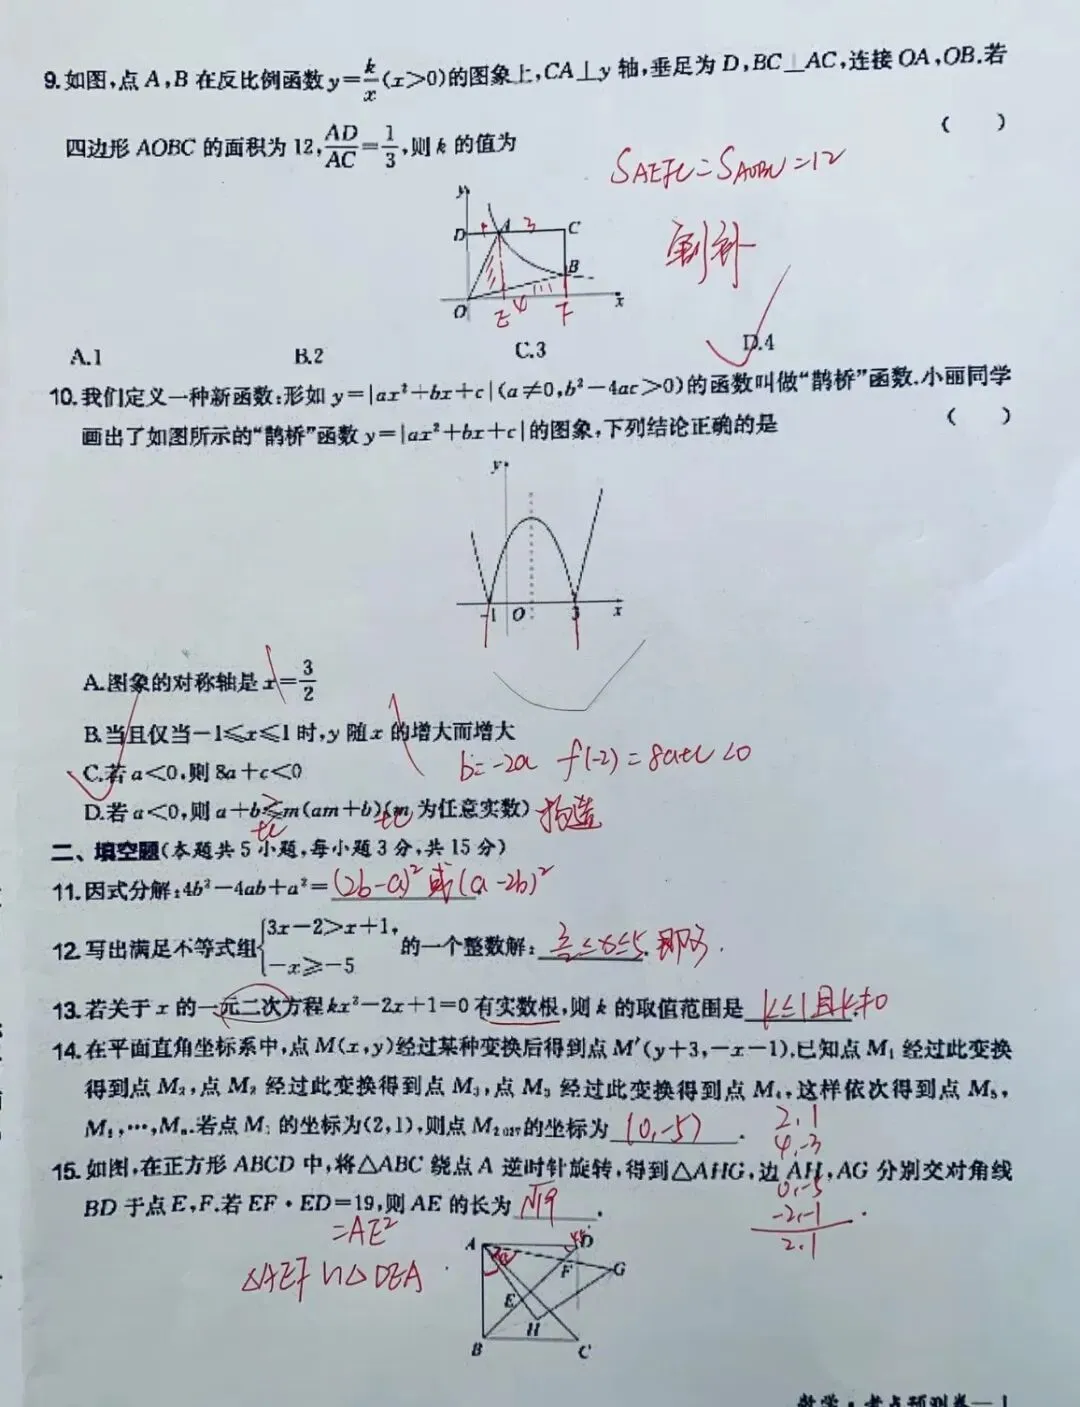 9.如图,点A,B在反比例函数y=k/x(x>0)的图象上,CA⊥y轴,垂足为D,BC⊥AC,连接OA,OB.若
四边形AOBC的面积为12,AD/AC=1/3,则k的值为 ( )
S AEFC=S AOBC=12
割补
y
D A 3 C
B
O E 4 F x
A.1 B.2 C.3 D.4
10.我们定义一种新函数:形如y=|ax²+bx+c|(a≠0,b²-4ac>0)的函数叫做“鹊桥”函数.小丽同学
画出了如图所示的“鹊桥”函数y=|ax²+bx+c|的图象,下列结论正确的是 ( )
y
-1 O 3 x
A.图象的对称轴是x=3/2
B.当且仅当-1≤x≤1时,y随x的增大而增大
C.若a<0,则8a+c<0
b=-2a f(-2)=8a+c<0
D.若a<0,则a+b≤m(am+b)(m为任意实数)
+c +c 构造
二、填空题(本题共5小题,每小题3分,共15分)
11.因式分解:4b²-4ab+a²=(2b-a)²或(a-2b)²
12.写出满足不等式组{3x-2>x+1, -x≥-5 的一个整数解: 3/2≤x≤5 .即可.
13.若关于x的一元二次方程kx²-2x+1=0有实数根,则k的取值范围是 k≤1且k≠0
14.在平面直角坐标系中,点M(x,y)经过某种变换后得到点M′(y+3,-x-1).已知点M₁经过此变换
得到点M₂,点M₂经过此变换得到点M₃,点M₃经过此变换得到点M₄,这样依次得到点M₅,
M₆,…,Mₙ.若点M₁的坐标为(2,1),则点M₂₀₂₇的坐标为 (0,-5) .
2,1
4,-3
0,-5
-2,-1
2,1
15.如图,在正方形ABCD中,将△ABC绕点A逆时针旋转,得到△AHG,边AH,AG分别交对角线
BD于点E,F.若EF·ED=19,则AE的长为 √19 .
=AE²
△AEF∽△DEA
A D
F G
E
H
B C
数学·考点预测卷—1